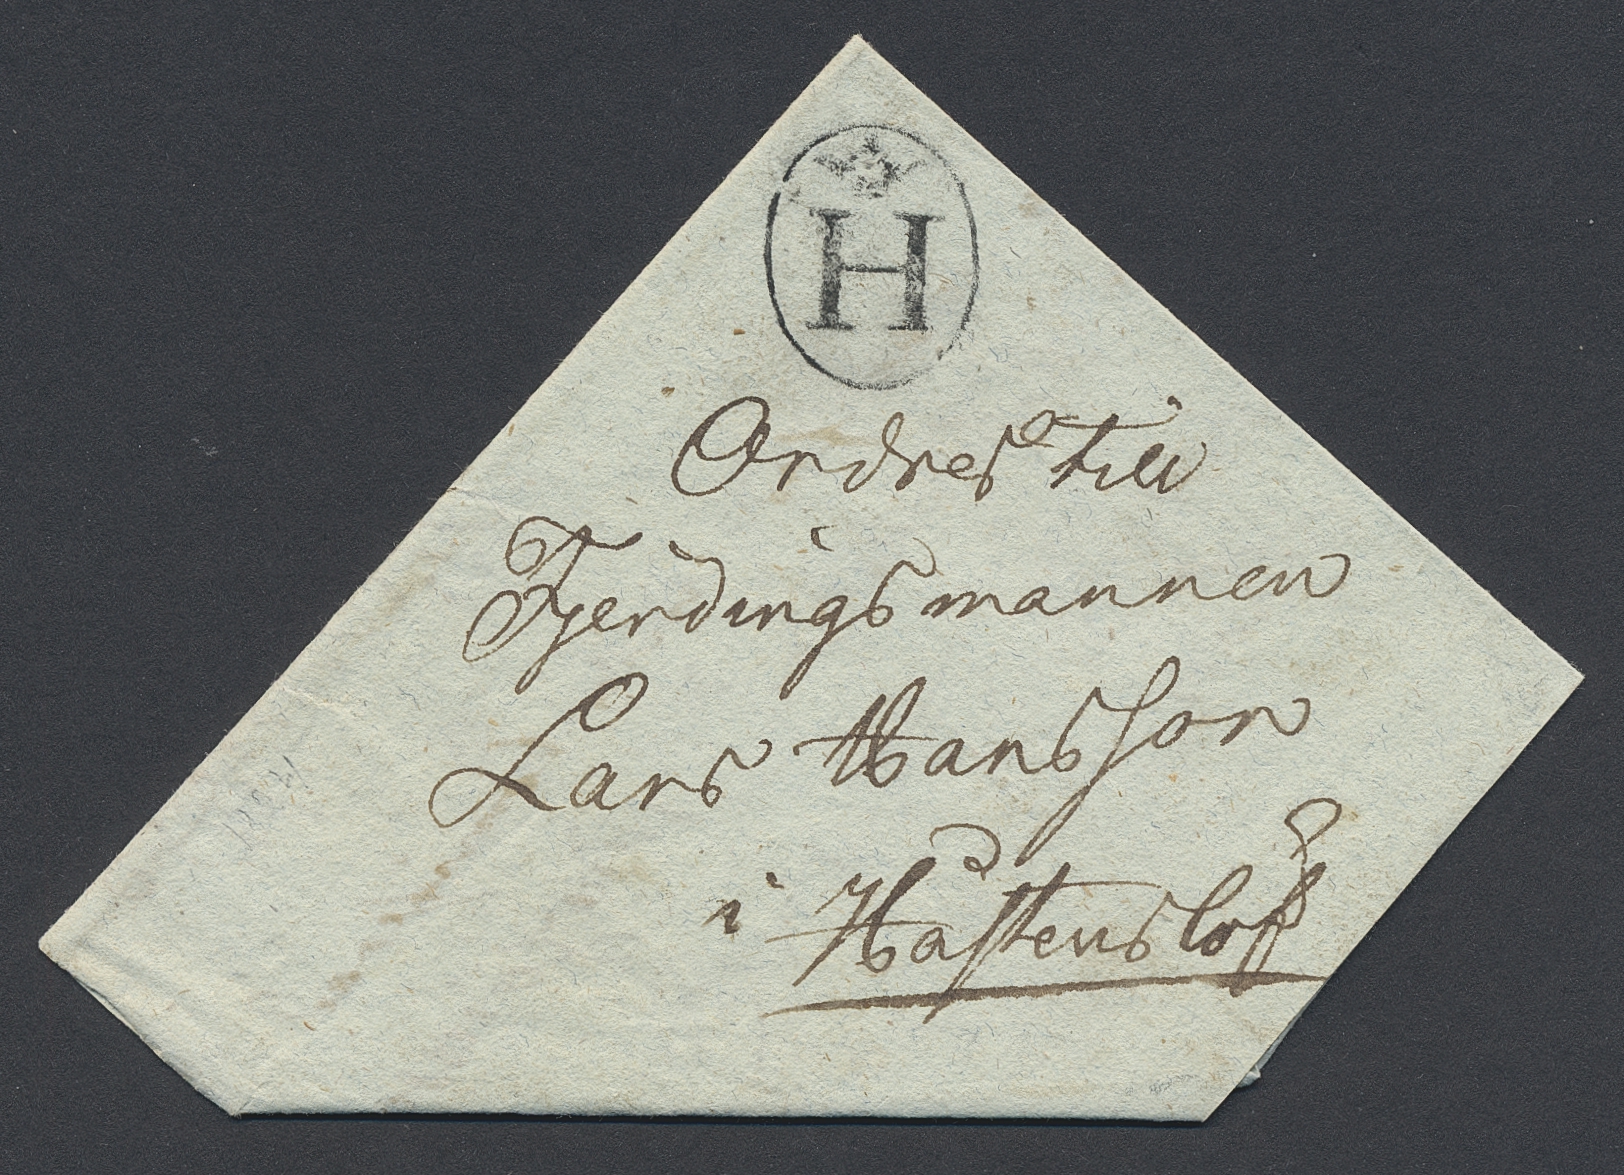 H
Ordres till
Fjerdingsmannen
Lars Hansson
i Hastenslöf